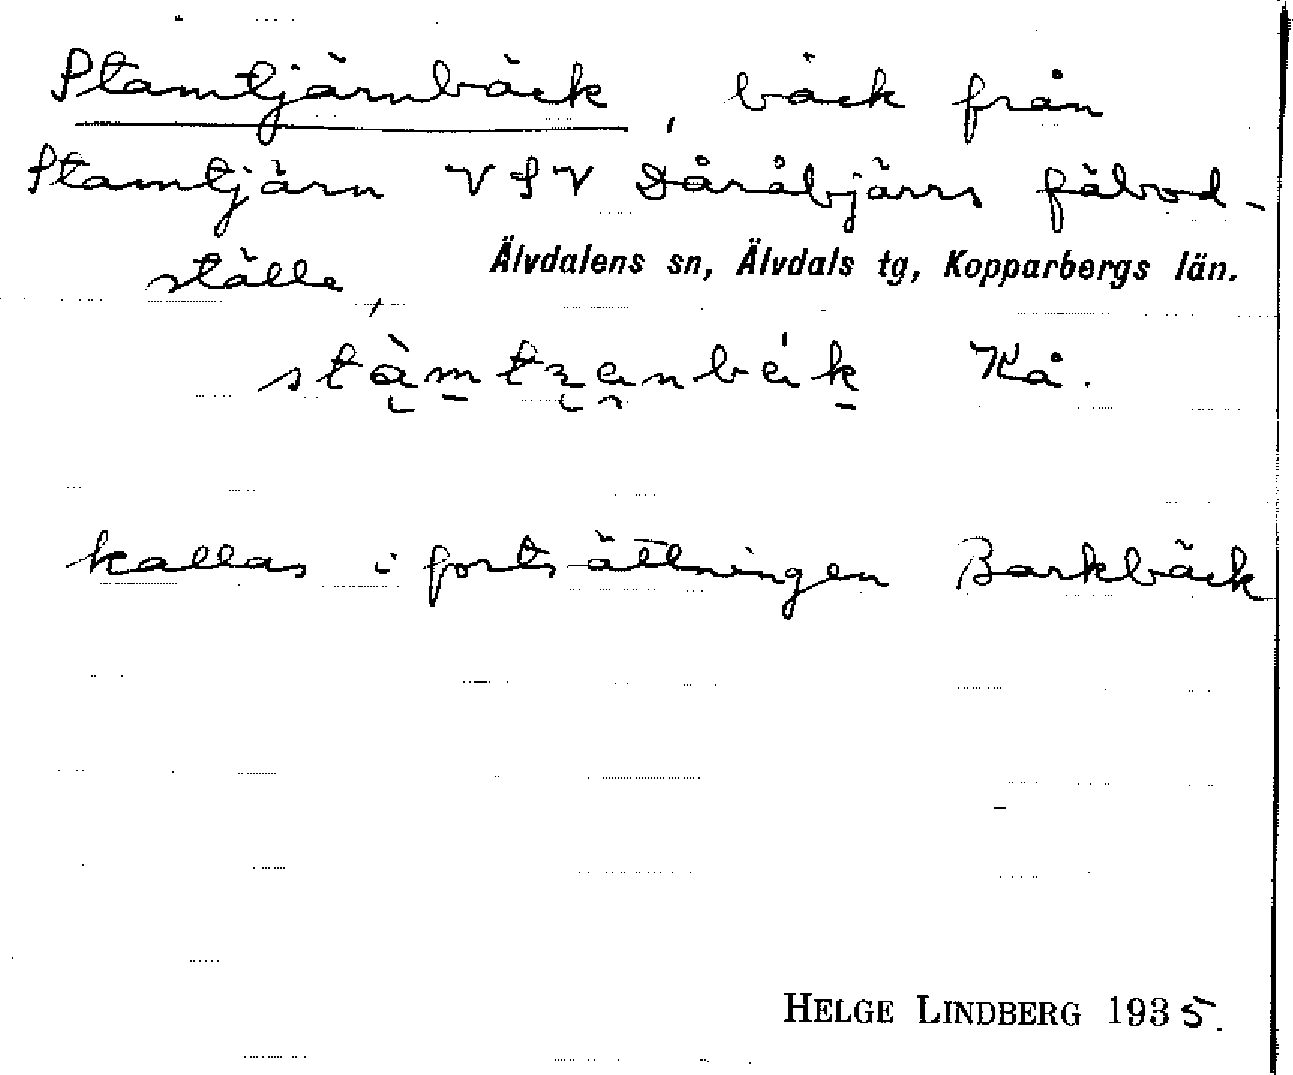 Stamtjärnbäck, bäck från
Stamtjärn VSV Dåråbjärrs fäbod-
ställe,
Älvdalens sn, Älvdals tg, Kopparbergs län.
Kå.
kallas i fortsättningen Barkbäck
HELGE LINDBERG 1935.